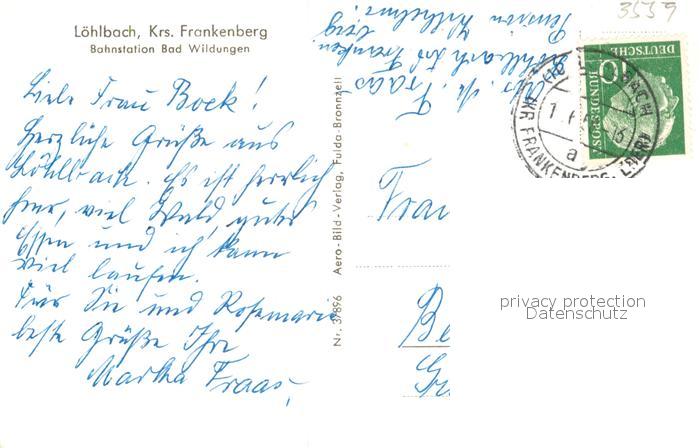 Löhlbach, Krs. Frankenberg
Bahnstation Bad Wildungen
Liebe Frau Bock!
Herzliche Grüße aus
Löhlbach. Es ist herrlich
hier, viel Wald, gutes
Essen und ich kann
viel laufen.
Für Sie und Rosemarie
beste Grüße Ihre
Martha Fraas,
Nr. 37896 Aero-Bild-Verlag, Fulda-Bronnzell
Abs. M. Fraas
Löhlbach bei Franken
berg
Pension Wilhelmi
3559
DEUTSCHE
BUNDESPOST
10
(KR FRANKENBERG, EDER)
a
Frau
Be
privacy protection
Datenschutz